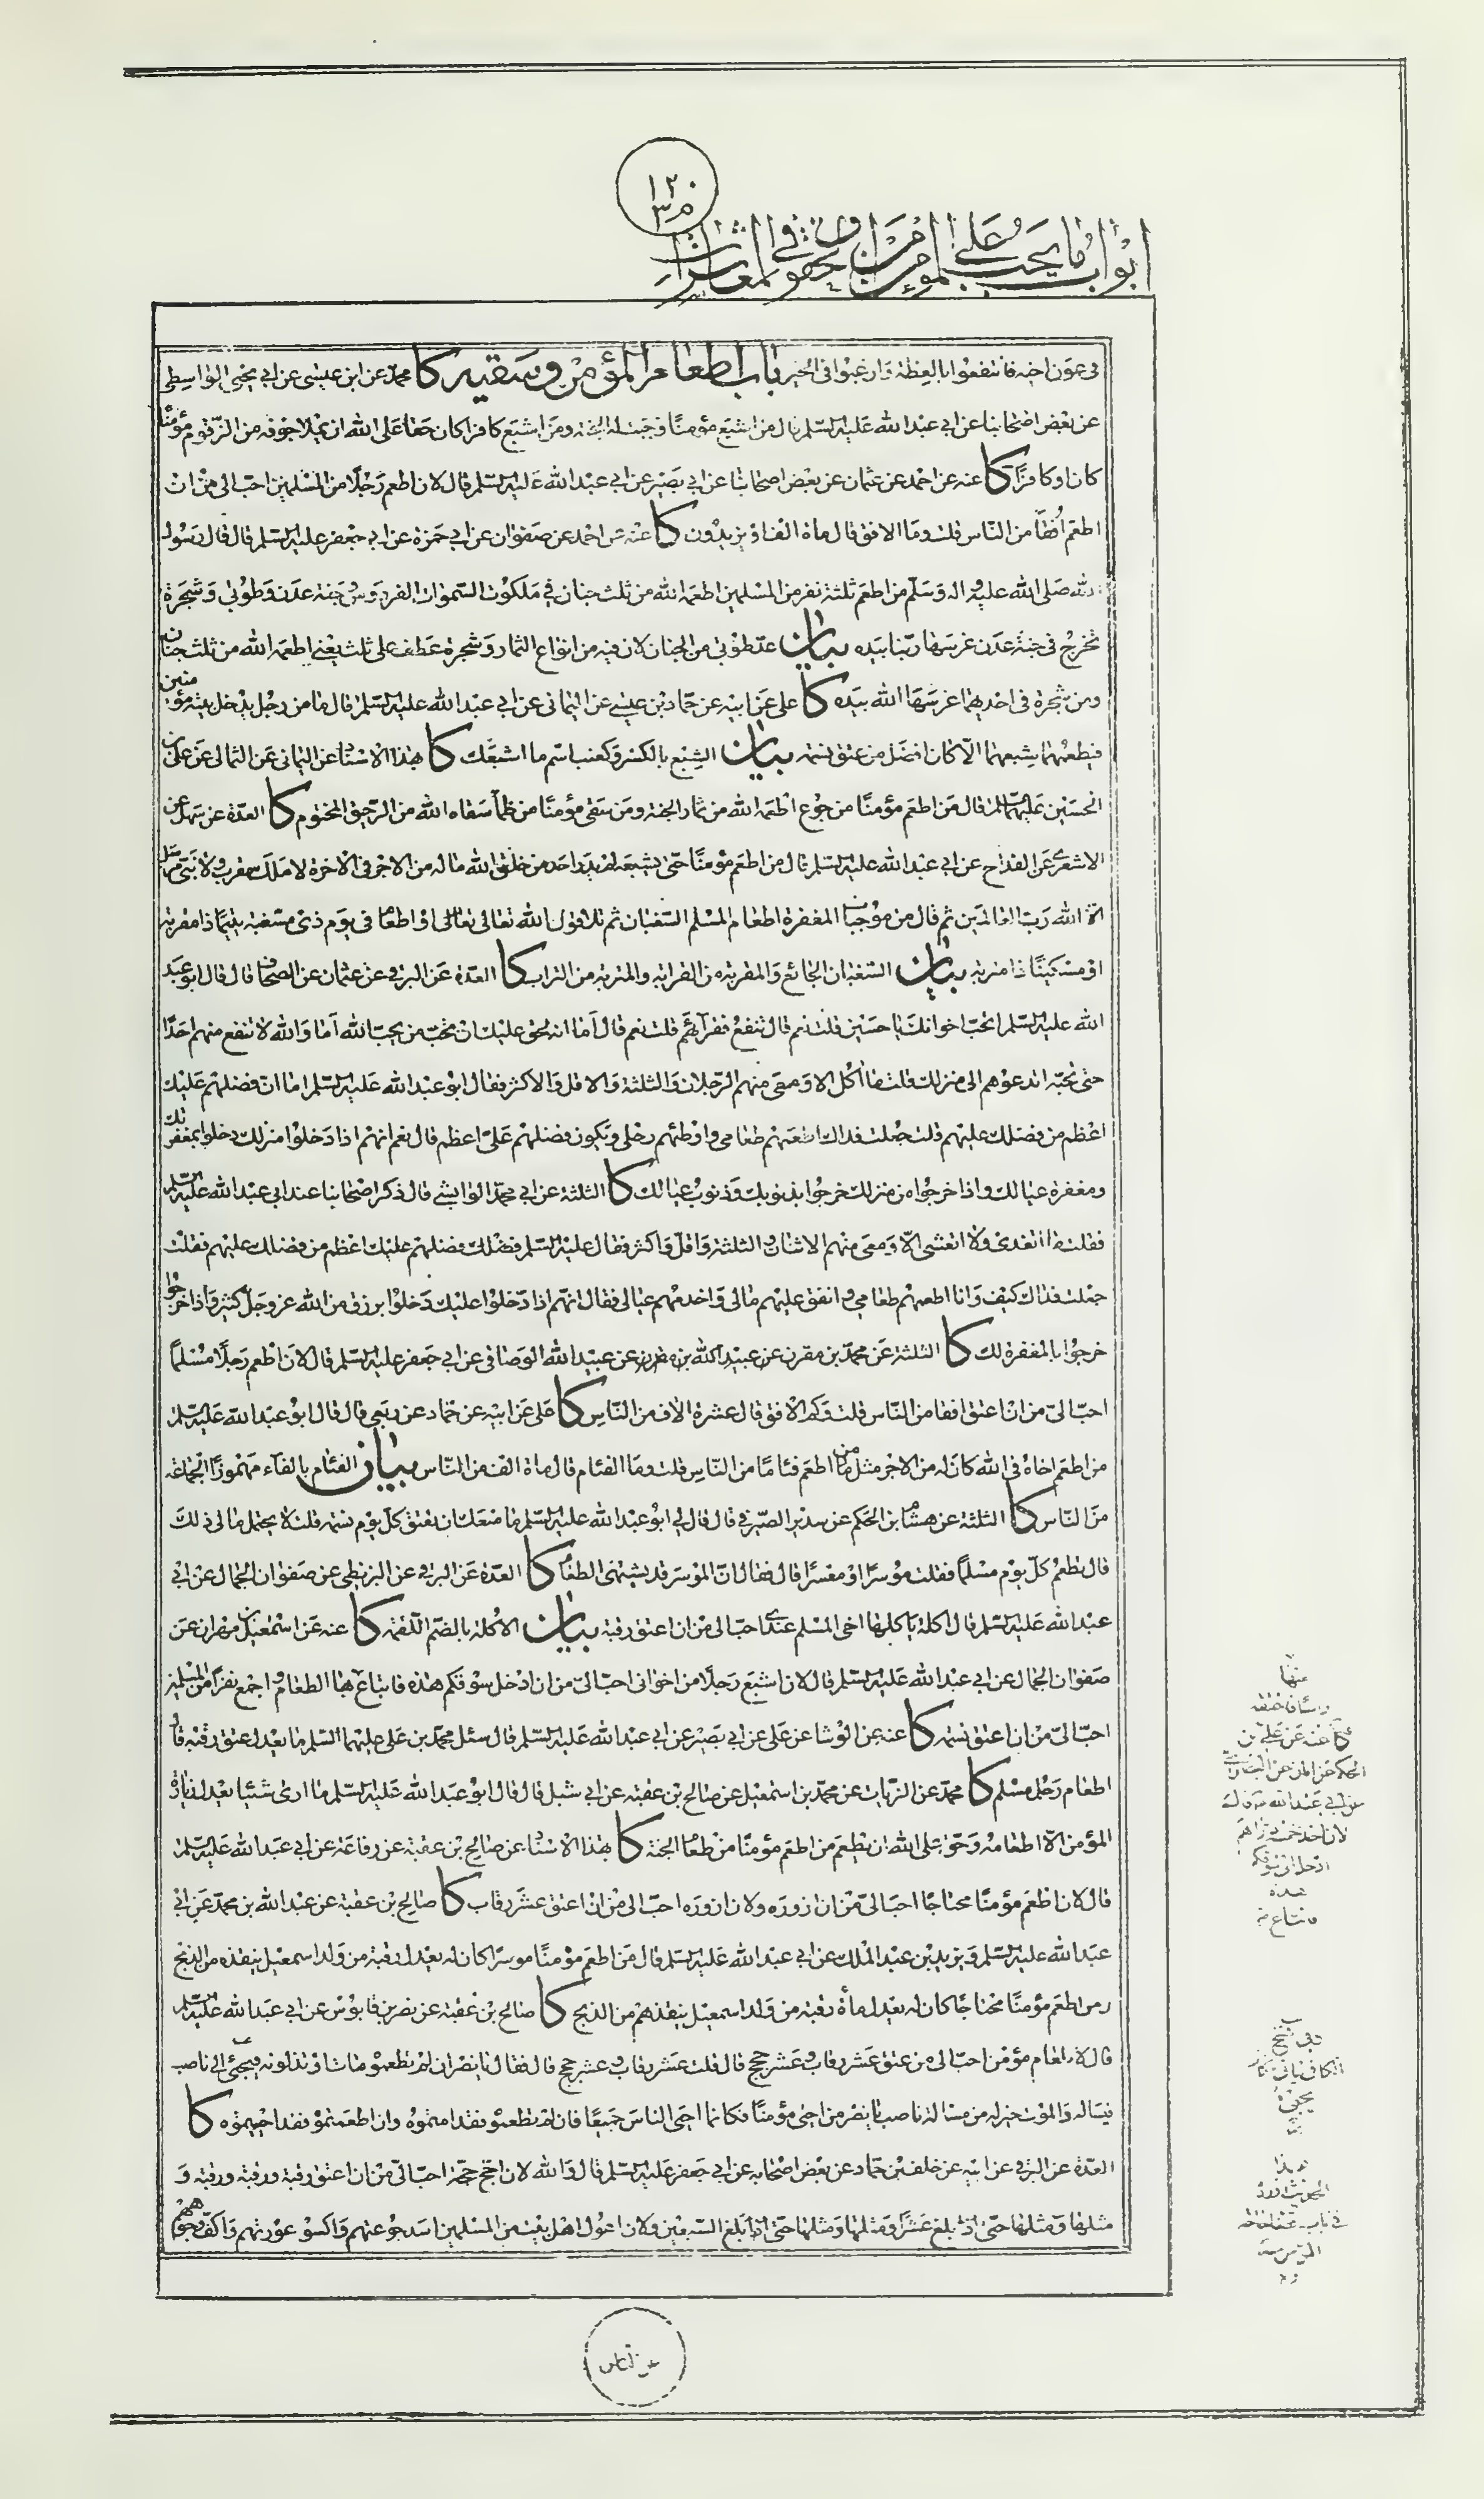 ١٢٠
م ٣
ابواب ما يجب على المؤمن من الحقوق في المعاشرات
في عون اخيه فانتفعوا بالعظة وارغبوا في الخير باب اطعام المؤمن وسقيه كا محمد عن ابن عيسى عن ابي يحيى الواسطي
عن بعض اصحابنا عن ابي عبد الله عليه السلم قال من اشبع مؤمنا وجبت له الجنة ومن اشبع كافرا كان حقا على الله ان يملا جوفه من الزقوم مؤمنا
كان او كافرا كا عنه عن احمد عن عثمان عن بعض اصحابنا عن ابي بصير عن ابي عبد الله عليه السلم قال لان اطعم رجلا من المسلمين احب الي من ان
اطعم افقا من الناس قلت وما الافق قال ماة الف او يزيدون كا عنه عن احمد عن صفوان عن ابي حمزة عن ابي جعفر عليه السلم قال قال رسول
الله صلى الله عليه واله وسلم من اطعم ثلثة نفر من المسلمين اطعمه الله من ثلث جنان في ملكوت السموات الفردوس وجنة عدن وطوبى وشجرة
تخرج في جنة عدن غرسها ربنا بيده بيان عد طوبى من الجنان لان فيه من انواع الثمار وشجرة عطف على ثلث يعني اطعمه الله من ثلث جنان
ومن شجرة في احديهما غرسها الله بيده كا علي عن ابيه عن حماد بن عيسى عن اليماني عن ابي عبد الله عليه السلم قال ما من رجل يدخل بيته مؤمنين
فيطعمهما شبعهما الا كان افضل من عتق نسمة بيان الشبع بالكسر وكعنب اسم ما اشبعك كا بهذا الاسناد عن اليماني عن الثمالي عن علي بن
الحسين عليهما السلم قال من اطعم مؤمنا من جوع اطعمه الله من ثمار الجنة ومن سقى مؤمنا من ظمأ سقاه الله من الرحيق المختوم كا العدة عن سهل عن
الاشعري عن القداح عن ابي عبد الله عليه السلم قال من اطعم مؤمنا حتى يشبعه لم يدر احد من خلق الله ما له من الاجر في الاخرة لا ملك مقرب ولا نبي مرسل
الا الله رب العالمين ثم قال من موجبات المغفرة اطعام المسلم السغبان ثم تلا قول الله تعالى تعالى او اطعام في يوم ذي مسغبة يتيما ذا مقربة
او مسكينا ذا متربة بيان السغبان الجائع والمقربة من القرابة والمتربة من التراب كا العدة عن البرقي عن عثمان عن الصحاف قال قال ابو عبد
الله عليه السلم اتحب اخوانك يا حسين قلت نعم قال تنفع فقرآئهم قلت نعم قال أما انه لحق عليك ان تحب من يحب الله أما والله لا تنفع منهم احدا
حتى تحبه اتدعوهم الى منزلك قلت ما آكل الا ومعي منهم الرجلان والثلثة والاقل والاكثر فقال ابو عبد الله عليه السلم اما ان فضلهم عليك
اعظم من فضلك عليهم قلت جعلت فداك اطعمهم طعامي واوطئهم رحلي ويكون فضلهم علي اعظم قال نعم انهم اذا دخلوا منزلك دخلوا بمغفرتك
ومغفرة عيالك واذا خرجوا من منزلك خرجوا بذنوبك وذنوب عيالك كا الثلثة عن ابي محمد الوابشي قال ذكر اصحابنا عند ابي عبد الله عليه السلم
فقلت ما اتغدى ولا اتعشى الا ومعي منهم الاثنان والثلثة واقل واكثر فقال عليه السلم فضلهم عليك اعظم من فضلك عليهم فقلت
جعلت فداك كيف وانا اطعمهم طعامي وانفق عليهم مالي واخدمهم عيالي فقال انهم اذا دخلوا عليك دخلوا برزق من الله عز وجل كثير واذا خرجوا
خرجوا بالمغفرة لك كا الثلثة عن محمد بن مقرن عن عبيد الله بن مقرن عن عبيد الله الوصافي عن ابي جعفر عليه السلم قال لان اطعم رجلا مسلما
احب الي من ان اعتق افقا من الناس قلت وكم الافق قال عشرة الاف من الناس كا علي عن ابيه عن حماد عن ربعي قال قال ابو عبد الله عليه السلم
من اطعم اخاه في الله كان له من الاجر مثل من اطعم فئاما من الناس قلت وما الفئام قال ماة الف من الناس بيان الفئام بالفآء مهموزا الجماعة
من الناس كا الثلثة عن هشام بن الحكم عن سدير الصيرفي قال قال لي ابو عبد الله عليه السلم ما منعك ان تعتق كل يوم نسمة قلت لا يحتمل مالي ذلك
قال تطعم كل يوم مسلما فقلت موسرا او معسرا قال فقال ان الموسر قد يشتهي الطعام كا العدة عن البرقي عن البزنطي عن صفوان الجمال عن ابي
عبد الله عليه السلم قال اكلة ياكلها اخي المسلم عندي احب الي من ان اعتق رقبة بيان الاكلة بالضم اللقمة كا عنه عن اسمعيل بن مهران عن
صفوان الجمال عن ابي عبد الله عليه السلم قال لان اشبع رجلا من اخواني احب الي من ان ادخل سوقكم هذه فابتاع منها الطعام واجمع نفرا من المسلمين
احب الي من ان اعتق نسمة كا عنه عن الوشا عن علي عن ابي بصير عن ابي عبد الله عليه السلم قال سئل محمد بن علي عليهما السلم ما يعدل عتق رقبة قال
اطعام رجل مسلم كا محمد عن الزيات عن محمد بن اسمعيل عن صالح بن عقبة عن ابي شبل قال قال ابو عبد الله عليه السلم ما ارى شئيا يعدل زيارة
المؤمن الا اطعامه وحق على الله ان يطعم من اطعم مؤمنا من طعام الجنة كا بهذا الاسناد عن صالح بن عقبة عن رفاعة عن ابي عبد الله عليه السلم
قال لان اطعم مؤمنا محتاجا احب الي من ان ازوره ولان ازوره احب الي من ان اعتق عشر رقاب كا صالح بن عقبة عن عبد الله بن محمد عن ابي
عبد الله عليه السلم ويزيد بن عبد الملك عن ابي عبد الله عليه السلم قال من اطعم مؤمنا موسرا كان له يعدل رقبة من ولد اسمعيل ينقذه من الذبح
ومن اطعم مؤمنا محتاجا كان له يعدل مأة رقبة من ولد اسمعيل ينقذهم من الذبح كا صالح بن عقبة عن نصر بن قابوس عن ابي عبد الله عليه السلم
قال لاطعام مؤمن احب الي من عتق عشر رقاب وعشر حجج قال قلت عشر رقاب وعشر حجج قال فقال يا نصر ان لم تطعموه مات او تذلونه فيجئ الى ناصب
فيساله والموت خير له من مسالة ناصب يا نصر من احيى مؤمنا فكانما احيى الناس جميعا فان لم تطعموه فقد امتموه وان اطعمتموه فقد احييتموه كا
العدة عن البرقي عن ابيه عن خلف بن حماد عن بعض اصحابه عن ابي جعفر عليه السلم قال والله لان احج حجة احب الي من ان اعتق رقبة ورقبة ورقبة و
مثلها ومثلها حتى اذا بلغ عشرا ومثلها ومثلها حتى اذا بلغ السبعين ولان اعول اهل بيت من المسلمين اسد جوعتهم واكسو عورتهم واكف وجوههم
منها
كا عنه عن علي بن
الحكم عن
عن ابي عبد الله ع قال
لان اخذ خمسة دراهم
ادخل الى سوقكم
هذه
فابتاع
في نسخ
الكافي
هذا
الحديث اورد
في باب